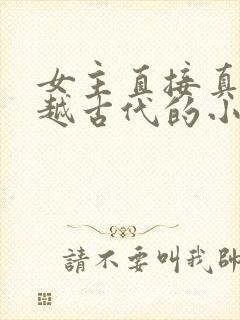 女主直接真
越古代的小
請不要叫我帥